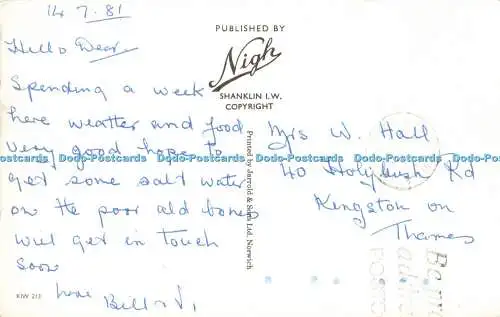 14.7.81
Hello Dear
Spending a week
here weather and food
very good hope to
get some salt water
on the poor old bones
will get in touch
soon
love Bill & Vi
KIW 213
PUBLISHED BY
Nigh
SHANKLIN I.W.
COPYRIGHT
Printed by Jarrold & Sons Ltd, Norwich
Mrs W. Hall
40 Holybush Rd
Kingston on
Thames
Dodo-Postcards Dodo-Postcards Dodo-Postcards Dodo-Postcards Dodo-Postcards Dodo-Postcards
Dodo-Postcards Dodo-Postcards Dodo-Postcards Dodo-Postcards Dodo-Postcards Dodo-Postcards